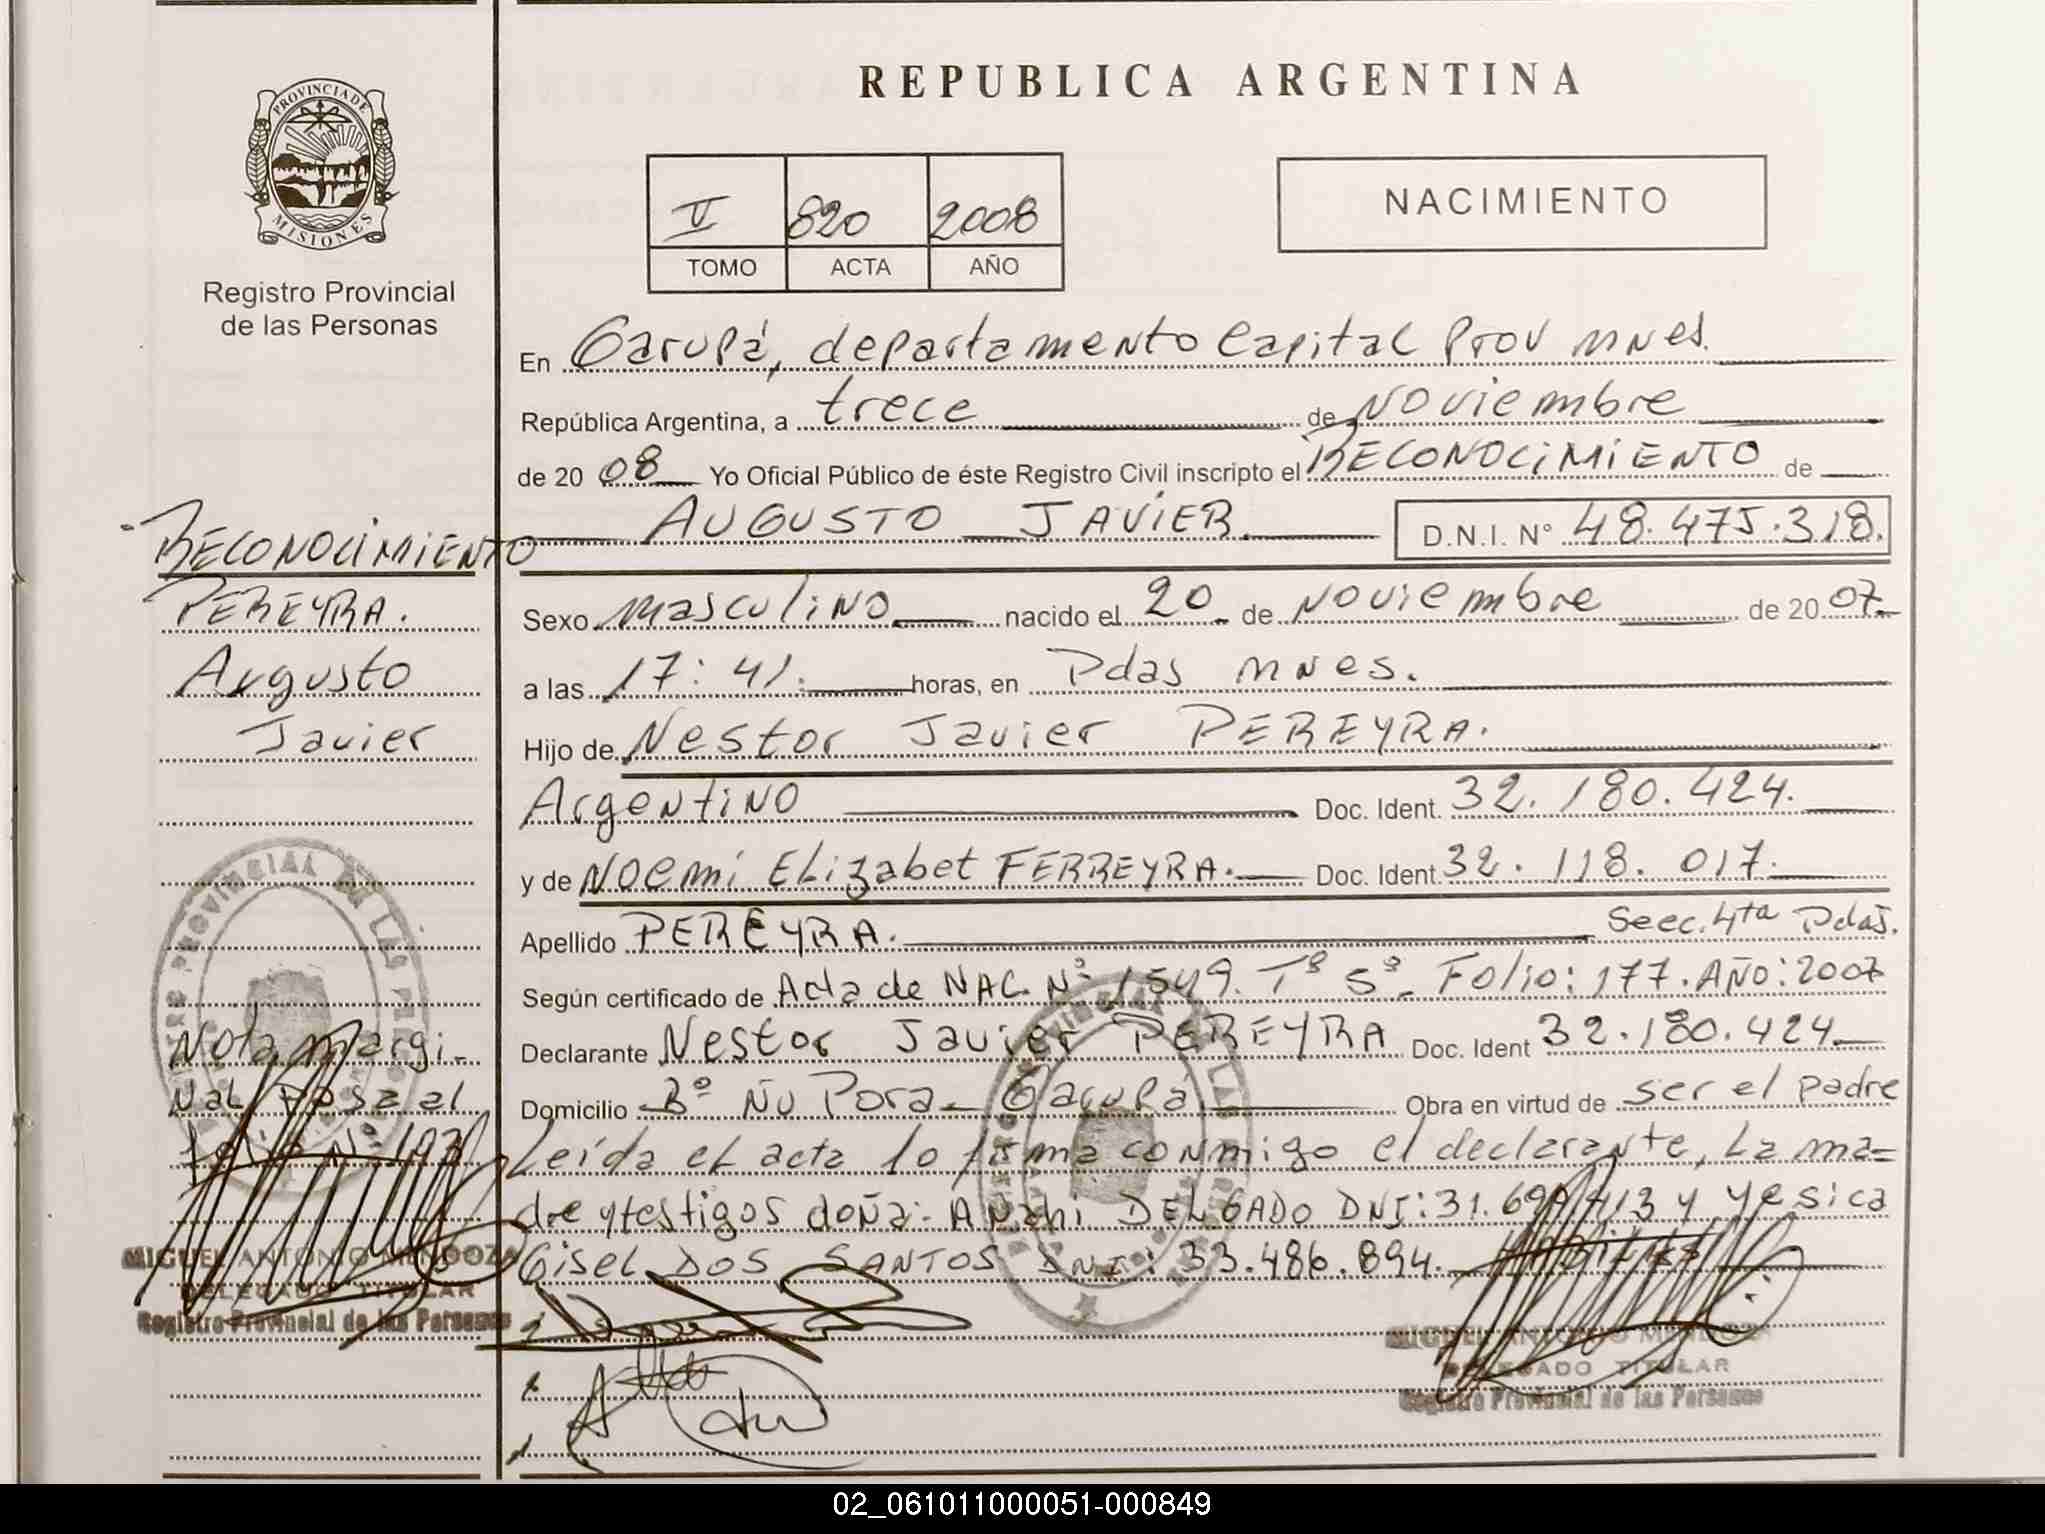 REPUBLICA ARGENTINA
PROVINCIA DE
MISIONES
Registro Provincial
de las Personas
V 820 2008
TOMO ACTA AÑO
NACIMIENTO
En Garupá, departamento Capital Prov mnes.
República Argentina, a trece de Noviembre
de 20 08 Yo Oficial Público de éste Registro Civil inscripto el RECONOCIMIENTO de
AUGUSTO JAVIER. D.N.I. N° 48.475.318.
Sexo masculino nacido el 20 de Noviembre de 20 07
a las 17:41. horas, en Pdas mnes.
Hijo de Nestor Javier PEREYRA.
Argentino Doc. Ident. 32.180.424.
y de Noemí Elizabet FERREYRA. Doc. Ident. 32.118.017.
Apellido PEREYRA. Secc. 4ta Pdas.
Según certificado de Acta de NAC. Nº 1549. Tº 5º Folio: 177. AÑO: 2007
Declarante Nestor Javier PEREYRA Doc. Ident 32.180.424
Domicilio Bº Ñu Pora. Garupá Obra en virtud de ser el padre
Leída el acta lo firma conmigo el declarante, La ma=
dre y testigos doña: Anahi DELGADO DNI: 31.69 413 y Yesica
Gisel DOS SANTOS DNI: 33.486.894.
MIGUEL ANTONIO MENDOZA
DELEGADO TITULAR
Registro Provincial de las Personas
RECONOCIMIENTO
PEREYRA.
Augusto
Javier
Nota margi-
nal Pasa al
folio Nº
MIGUEL ANTONIO MENDOZA
DELEGADO TITULAR
Registro Provincial de las Personas
02_061011000051-000849